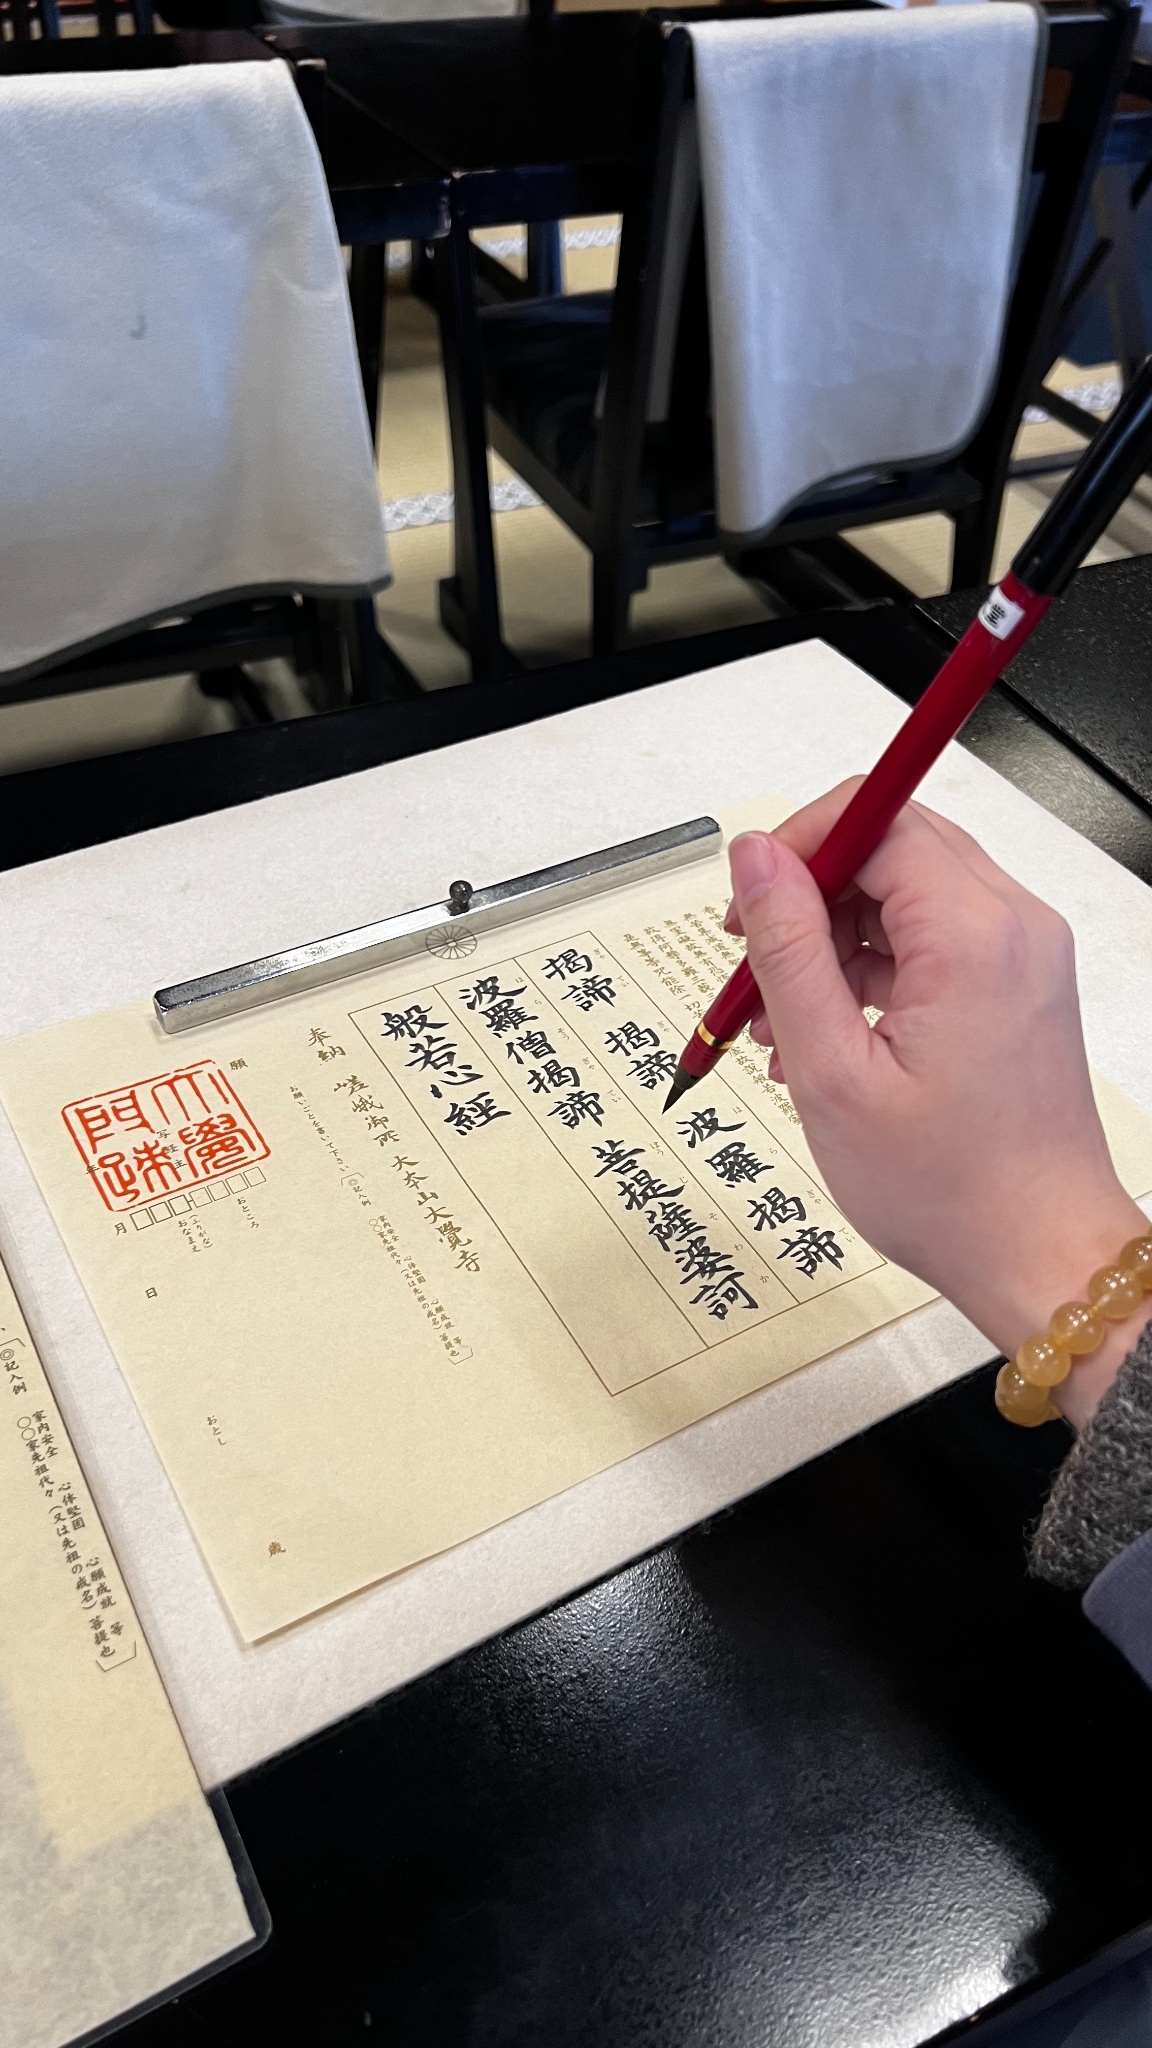 揭諦 揭諦 波羅揭諦
ぎゃ てい ぎゃ は ら ぎゃ てい
波羅僧揭諦 菩提薩婆訶
は ら そう ぎゃ てい ぼう じ そ わ か
般若心經
奉納 嵯峨御所 大本山大覺寺
お願いごとを書いて下さい
◎記入例
家内安全 心体堅固 心願成就 等
○○家先祖代々(又は先祖の戒名)菩提也
願
写経主
大覺
門跡
おところ
(ふりがな)
おなまえ
おとし
歳
年
月
日
◎記入例
家内安全 心体堅固 心願成就 等
○○家先祖代々(又は先祖の戒名)菩提也